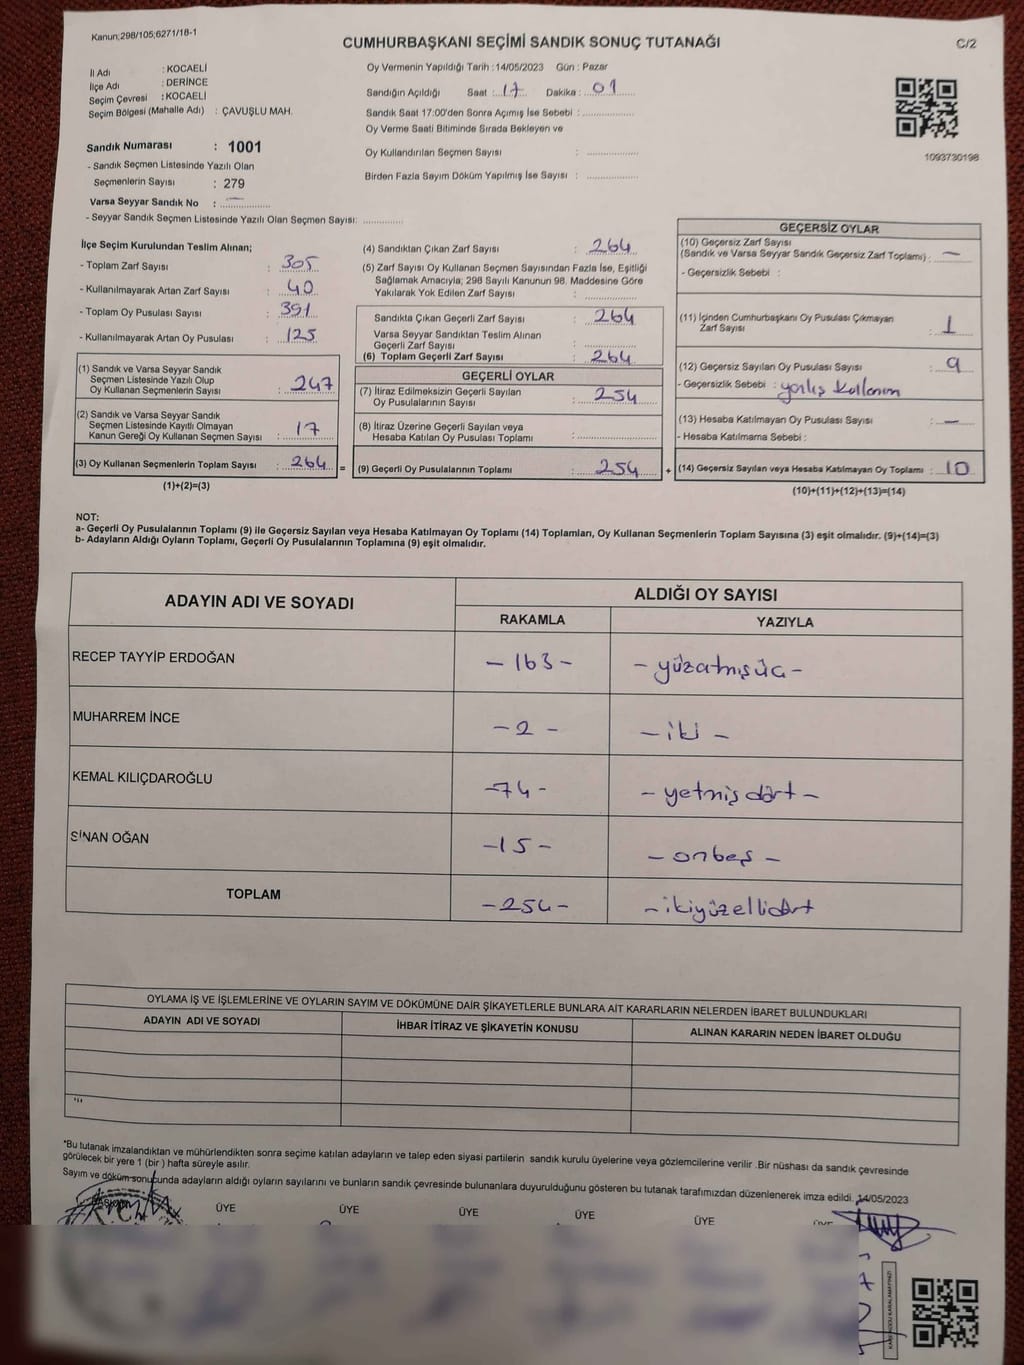 Kanun;298/105;6271/18-1
CUMHURBAŞKANI SEÇİMİ SANDIK SONUÇ TUTANAĞI
C/2
İl Adı : KOCAELİ
İlçe Adı : DERİNCE
Seçim Çevresi : KOCAELİ
Seçim Bölgesi (Mahalle Adı) : ÇAVUŞLU MAH.
Sandık Numarası : 1001
- Sandık Seçmen Listesinde Yazılı Olan
Seçmenlerin Sayısı : 279
Varsa Seyyar Sandık No : —
- Seyyar Sandık Seçmen Listesinde Yazılı Olan Seçmen Sayısı: ..............
Oy Vermenin Yapıldığı Tarih : 14/05/2023 Gün : Pazar
Sandığın Açıldığı Saat : 17 Dakika : 01
Sandık Saat 17:00'den Sonra Açımış İse Sebebi : ..................
Oy Verme Saati Bitiminde Sırada Bekleyen ve
Oy Kullandırılan Seçmen Sayısı : ..................
Birden Fazla Sayım Döküm Yapılmış İse Sayısı : ..................
1093730198
İlçe Seçim Kurulundan Teslim Alınan;
- Toplam Zarf Sayısı : 305
- Kullanılmayarak Artan Zarf Sayısı : 40
- Toplam Oy Pusulası Sayısı : 391
- Kullanılmayarak Artan Oy Pusulası : 125
(1) Sandık ve Varsa Seyyar Sandık
Seçmen Listesinde Yazılı Olup
Oy Kullanan Seçmenlerin Sayısı : 247
(2) Sandık ve Varsa Seyyar Sandık
Seçmen Listesinde Kayıtlı Olmayan
Kanun Gereği Oy Kullanan Seçmen Sayısı : 17
(3) Oy Kullanan Seçmenlerin Toplam Sayısı : 264 =
(1)+(2)=(3)
(4) Sandıktan Çıkan Zarf Sayısı : 264
(5) Zarf Sayısı Oy Kullanan Seçmen Sayısından Fazla İse, Eşitliği
Sağlamak Amacıyla; 298 Sayılı Kanunun 98. Maddesine Göre
Yakılarak Yok Edilen Zarf Sayısı : ..................
Sandıkta Çıkan Geçerli Zarf Sayısı : 264
Varsa Seyyar Sandıktan Teslim Alınan
Geçerli Zarf Sayısı : ..................
(6) Toplam Geçerli Zarf Sayısı : 264
GEÇERLİ OYLAR
(7) İtiraz Edilmeksizin Geçerli Sayılan
Oy Pusulalarının Sayısı : 254
(8) İtiraz Üzerine Geçerli Sayılan veya
Hesaba Katılan Oy Pusulası Toplamı : ..................
(9) Geçerli Oy Pusulalarının Toplamı : 254 +
GEÇERSİZ OYLAR
(10) Geçersiz Zarf Sayısı
(Sandık ve Varsa Seyyar Sandık Geçersiz Zarf Toplamı) : —
- Geçersizlik Sebebi :
(11) İçinden Cumhurbaşkanı Oy Pusulası Çıkmayan
Zarf Sayısı : 1
(12) Geçersiz Sayılan Oy Pusulası Sayısı : 9
- Geçersizlik Sebebi : yanlış kullanım
(13) Hesaba Katılmayan Oy Pusulası Sayısı : —
- Hesaba Katılmama Sebebi :
(14) Geçersiz Sayılan veya Hesaba Katılmayan Oy Toplamı : 10
(10)+(11)+(12)+(13)=(14)
NOT:
a- Geçerli Oy Pusulalarının Toplamı (9) ile Geçersiz Sayılan veya Hesaba Katılmayan Oy Toplamı (14) Toplamları, Oy Kullanan Seçmenlerin Toplam Sayısına (3) eşit olmalıdır. (9)+(14)=(3)
b- Adayların Aldığı Oyların Toplamı, Geçerli Oy Pusulalarının Toplamına (9) eşit olmalıdır.
ADAYIN ADI VE SOYADI ALDIĞI OY SAYISI
RAKAMLA YAZIYLA
RECEP TAYYİP ERDOĞAN -163- -yüzatmışüç-
MUHARREM İNCE -2- -iki-
KEMAL KILIÇDAROĞLU -74- -yetmişdört-
SİNAN OĞAN -15- -onbeş-
TOPLAM -254- -ikiyüzellidört
OYLAMA İŞ VE İŞLEMLERİNE VE OYLARIN SAYIM VE DÖKÜMÜNE DAİR ŞİKAYETLERLE BUNLARA AİT KARARLARIN NELERDEN İBARET BULUNDUKLARI
ADAYIN ADI VE SOYADI İHBAR İTİRAZ VE ŞİKAYETİN KONUSU ALINAN KARARIN NEDEN İBARET OLDUĞU
*Bu tutanak imzalandıktan ve mühürlendikten sonra seçime katılan adayların ve talep eden siyasi partilerin sandık kurulu üyelerine veya gözlemcilerine verilir .Bir nüshası da sandık çevresinde
görülecek bir yere 1 (bir ) hafta süreyle asılır.
Sayım ve döküm sonucunda adayların aldığı oyların sayılarını ve bunların sandık çevresinde bulunanlara duyurulduğunu gösteren bu tutanak tarafımızdan düzenlenerek imza edildi. 14/05/2023
ÜYE ÜYE ÜYE ÜYE ÜYE ÜYE
KAREKODU KARALAMAYINIZ!